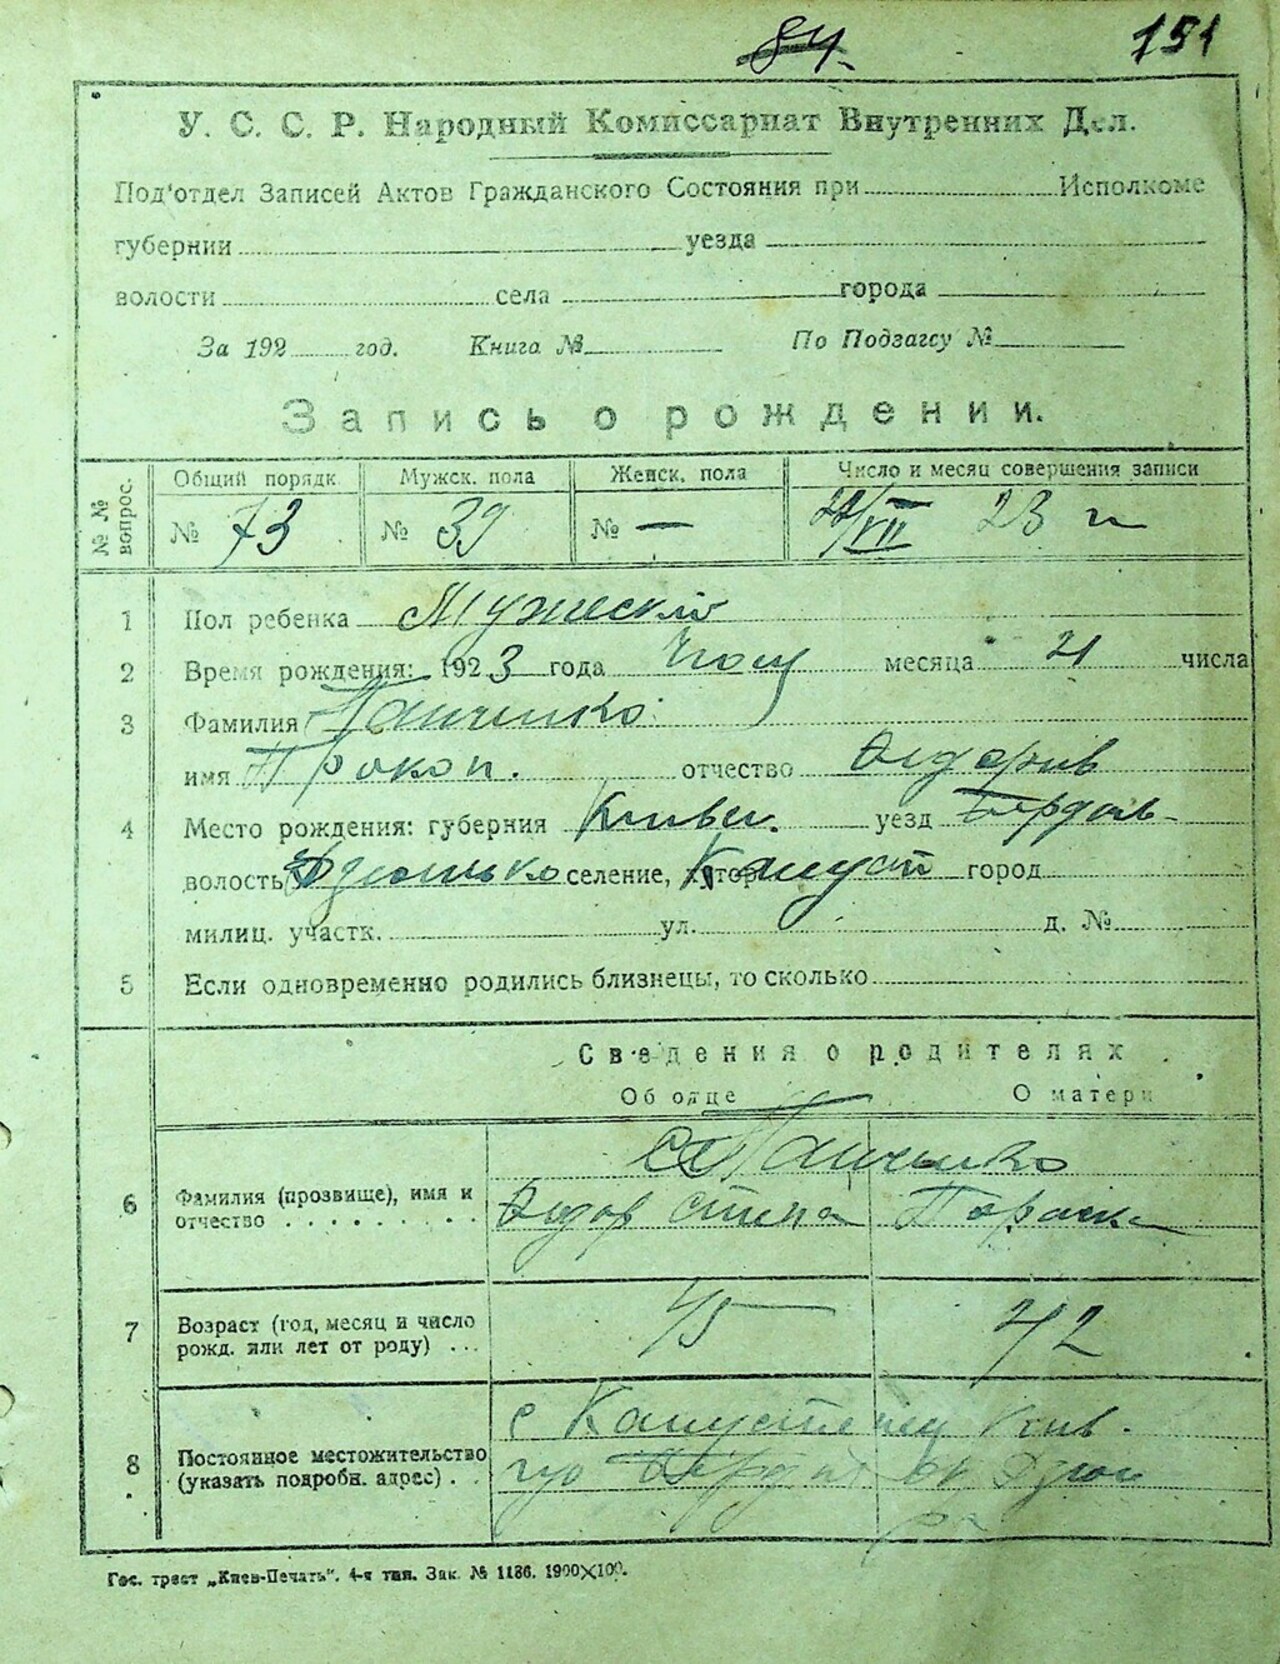 84 151
У. С. С. Р. Народный Комиссариат Внутренних Дел.
Под'отдел Записей Актов Гражданского Состояния при Исполкоме
губернии уезда
волости села города
За 192 год. Книга № По Подзагсу №
Запись о рождении.
№ № вопрос. Общий порядк. Мужск. пола Женск. пола Число и месяц совершения записи
№ 73 № 39 № — 22/VII 23 г
1 Пол ребенка Мужеский
2 Время рождения: 1923 года месяца 21 числа
3 Фамилия Панченко
имя Прокоп. отчество Федорив
4 Место рождения: губерния Киевс. уезд Бердич-
волость Дзюнько селение, хутор Капуст город
милиц. участк. ул. д. №
5 Если одновременно родились близнецы, то сколько
Сведения о родителях
Об отце О матери
Панченко
6 Фамилия (прозвище), имя и отчество Федор Степа Параска
7 Возраст (год, месяц и число рожд. или лет от роду) 45 42
8 Постоянное местожительство (указать подробн. адрес) с Киев.
Дзюн
Гос. трест „Киев-Печать“. 4-я тип. Зак. № 1186. 1900×100.